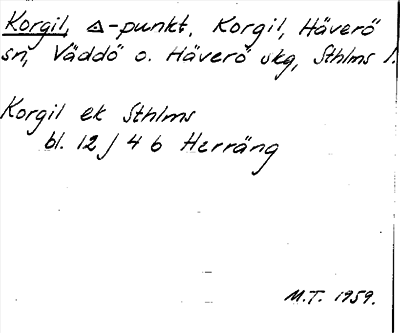 Korgil, △-punkt, Korgil, Häverö
sn, Väddö o. Häverö skg, Sthlms l.
Korgil ek Sthlms
bl. 12 J 4 b Herräng
M.T. 1959.